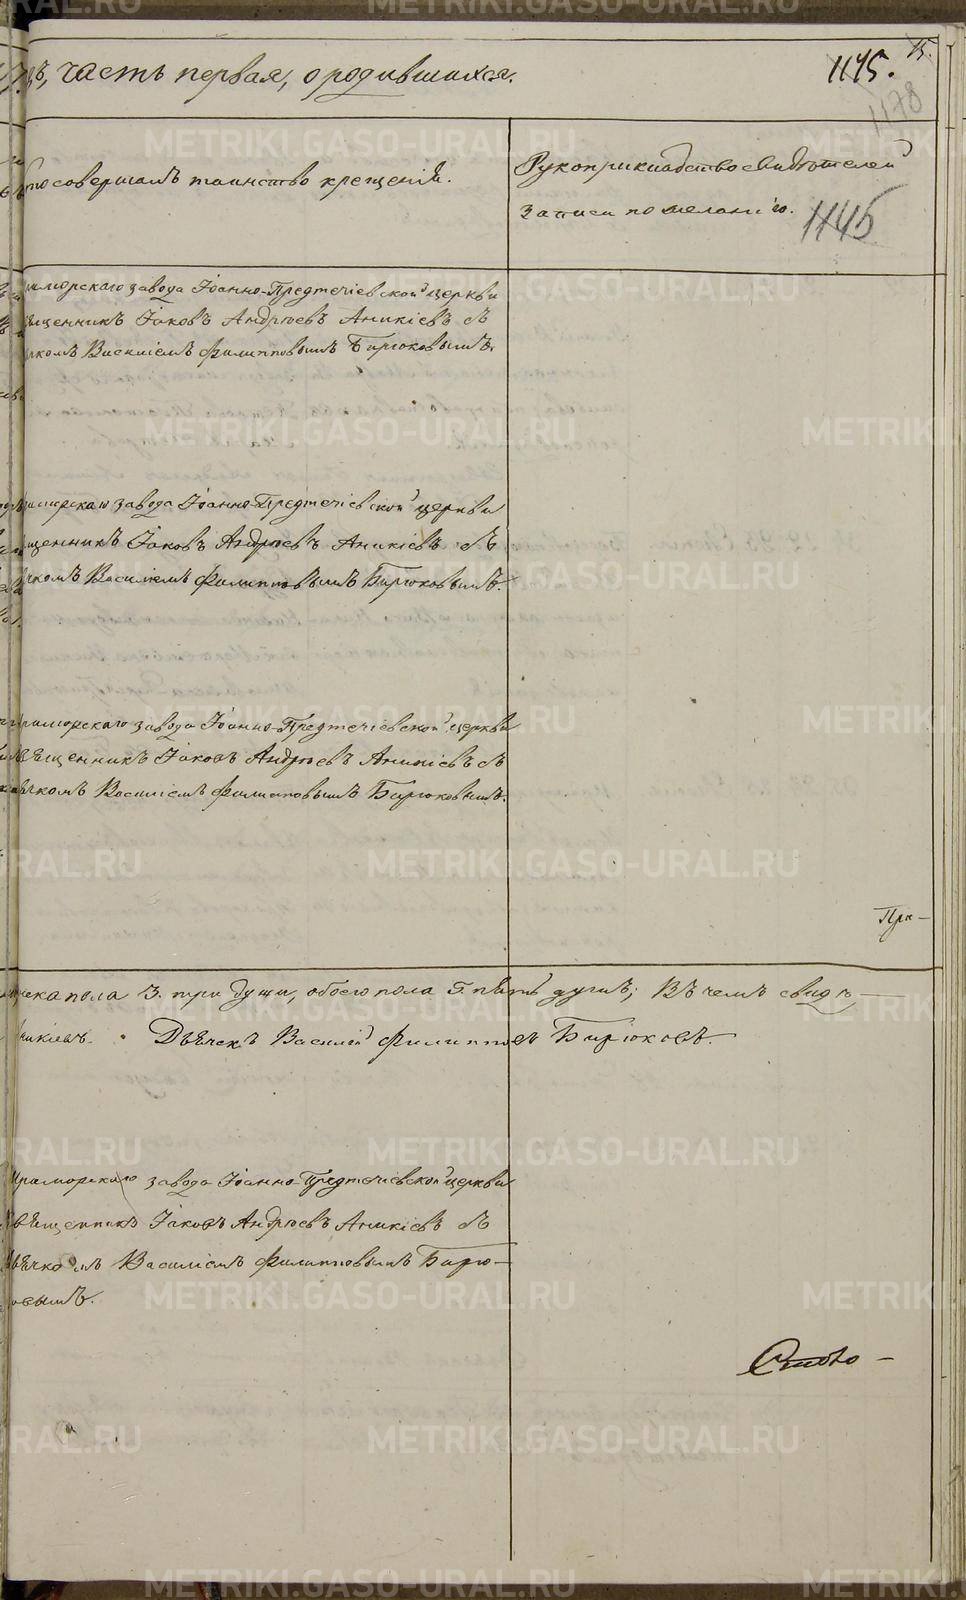 часть первая, о родившихся.
1175.
15.
1178
кто совершалъ таинство крещенія.
Рукоприкладство свидѣтелей
записи по желанію.
1145
раморскаго завода Іоанно-Предтечіевской церкви
щенникъ Іаковъ Андреевъ Аникіевъ съ
чкомъ Василіемъ Филипповымъ Бирюковымъ.
раморскаго завода Іоанно-Предтечіевской церкви
щенникъ Іаковъ Андреевъ Аникіевъ съ
чкомъ Василіемъ Филипповымъ Бирюковымъ.
раморскаго завода Іоанно-Предтечіевской церкви
вященникъ Іаковъ Андреевъ Аникіевъ съ
ячкомъ Василіемъ Филипповымъ Бирюковымъ.
Пра-
пола 3. три души, обоего пола 5. пять душъ; Въ чемъ свидѣ
никіевъ. Дьячекъ Василій Филипповъ Бирюковъ.
Мраморскаго завода Іоанно-Предтечіевской церкви
вященникъ Іаковъ Андреевъ Аникіевъ съ
ьячкомъ Василіемъ Филипповымъ Бирю-
овымъ.
METRIKI.GASO-URAL.RU